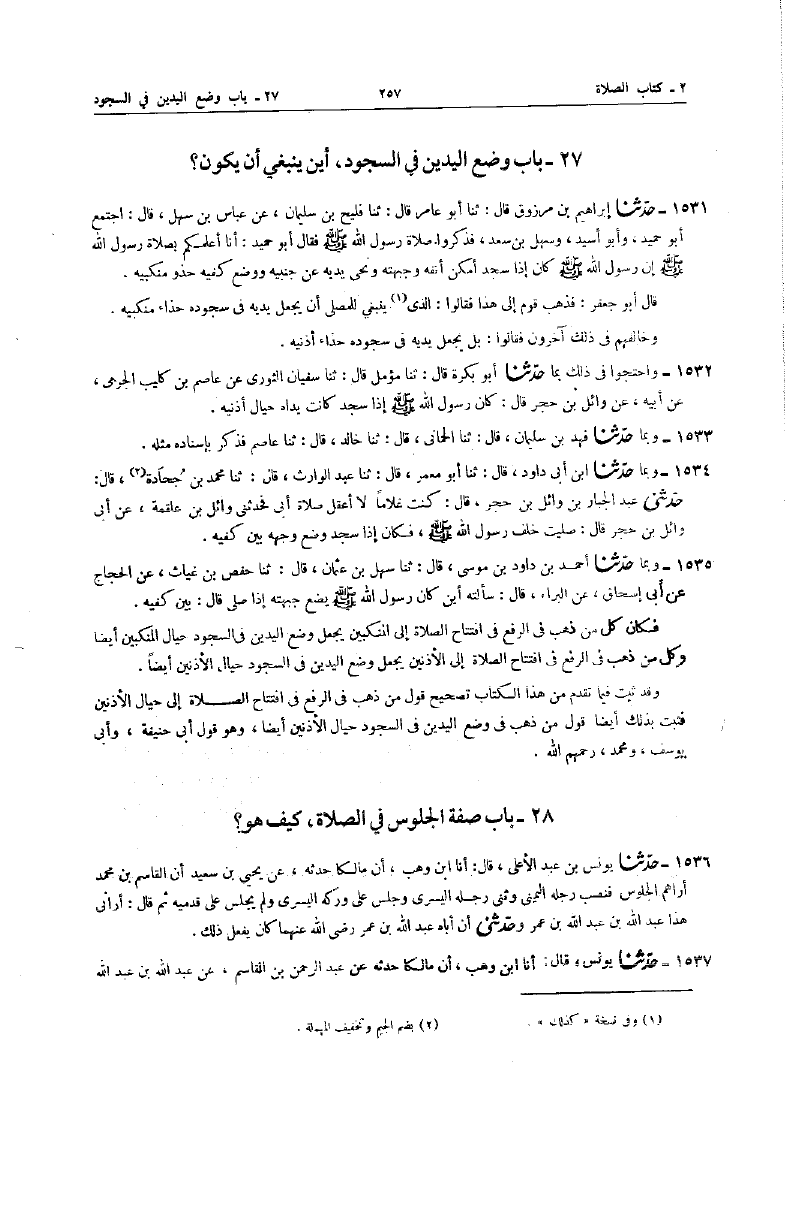 ٢ ـ كتاب الصلاة ٢٥٧ ٢٧ ـ باب وضع اليدين في السجود
٢٧ ـ باب وضع اليدين في السجود، أين ينبغي أن يكون؟
١٥٣١ ـ حدّثنا إبراهيم بن مرزوق قال : ثنا أبو عامر قال : ثنا فليح بن سليمان ، عن عباس بن سهل ، قال : اجتمع
أبو حميد ، وأبو أسيد ، وسهل بن سعد ، فذكروا صلاة رسول الله ﷺ فقال أبو حميد : أنا أعلمكم بصلاة رسول الله
ﷺ إن رسول الله ﷺ كان إذا سجد أمكن أنفه وجبهته ونحى يديه عن جنبيه ووضع كفيه حذو منكبيه .
قال أبو جعفر : فذهب قوم إلى هذا فقالوا : الذى(١) ينبغي للمصلى أن يجعل يديه فى سجوده حذاء منكبيه .
وخالفهم فى ذلك آخرون فقالوا : بل يجعل يديه فى سجوده حذاء أذنيه .
١٥٣٢ ـ واحتجوا فى ذلك بما حدّثنا أبو بكرة قال : ثنا مؤمل قال : ثنا سفيان الثورى عن عاصم بن كليب الجرمى ،
عن أبيه ، عن وائل بن حجر قال : كان رسول الله ﷺ إذا سجد كانت يداه حيال أذنيه .
١٥٣٣ ـ وبما حدّثنا فهد بن سليمان ، قال : ثنا الحمانى ، قال : ثنا خالد ، قال : ثنا عاصم فذكر بإسناده مثله .
١٥٣٤ ـ وبما حدّثنا ابن أبى داود ، قال : ثنا أبو معمر ، قال : ثنا عبد الوارث ، قال : ثنا محمد بن جُحادة(٢) ، قال :
حدّثنى عبد الجبار بن وائل بن حجر ، قال : كنت غلاماً لا أعقل صلاة أبى فحدثنى وائل بن علقمة ، عن أبى
وائل بن حجر قال : صليت خلف رسول الله ﷺ ، فكان إذا سجد وضع وجهه بين كفيه .
١٥٣٥ ـ وبما حدّثنا أحمد بن داود بن موسى ، قال : ثنا سهل بن عثمان ، قال : ثنا حفص بن غياث ، عن الحجاج
عن أبى إسحاق ، عن البراء ، قال : سألته أين كان رسول الله ﷺ يضع جبهته إذا صلى قال : بين كفيه .
فكان كل من ذهب فى الرفع فى افتتاح الصلاة إلى المنكبين يجعل وضع اليدين فى السجود حيال المنكبين أيضا
وكل من ذهب فى الرفع فى افتتاح الصلاة إلى الأذنين يجعل وضع اليدين فى السجود حيال الأذنين أيضاً .
وقد ثبت فيما تقدم من هذا الكتاب تصحيح قول من ذهب فى الرفع فى افتتاح الصــلاة إلى حيال الأذنين
فثبت بذلك أيضا قول من ذهب فى وضع اليدين فى السجود حيال الأذنين أيضا ، وهو قول أبى حنيفة ، وأبى
يوسف ، ومحمد ، رحمهم الله .
٢٨ ـ باب صفة الجلوس في الصلاة، كيف هو؟
١٥٣٦ ـ حدّثنا يونس بن عبد الأعلى ، قال : أنا ابن وهب ، أن مالكا حدثه ، عن يحيى بن سعيد أن القاسم بن محمد
أراهم الجلوس فنصب رجله اليمنى وثنى رجـله اليسرى وجلس على وركه اليسرى ولم يجلس على قدميه ثم قال : أرانى
هذا عبد الله بن عبد الله بن عمر وحدّثنى أن أباه عبد الله بن عمر رضى الله عنهما كان يفعل ذلك .
١٥٣٧ ـ حدّثنا يونس ، قال : أنا ابن وهب ، أن مالكا حدثه عن عبد الرحمن بن القاسم ، عن عبد الله بن عبد الله
(١) وفى نسخة « كذلك » . (٢) بضم الجيم وتخفيف المهملة .